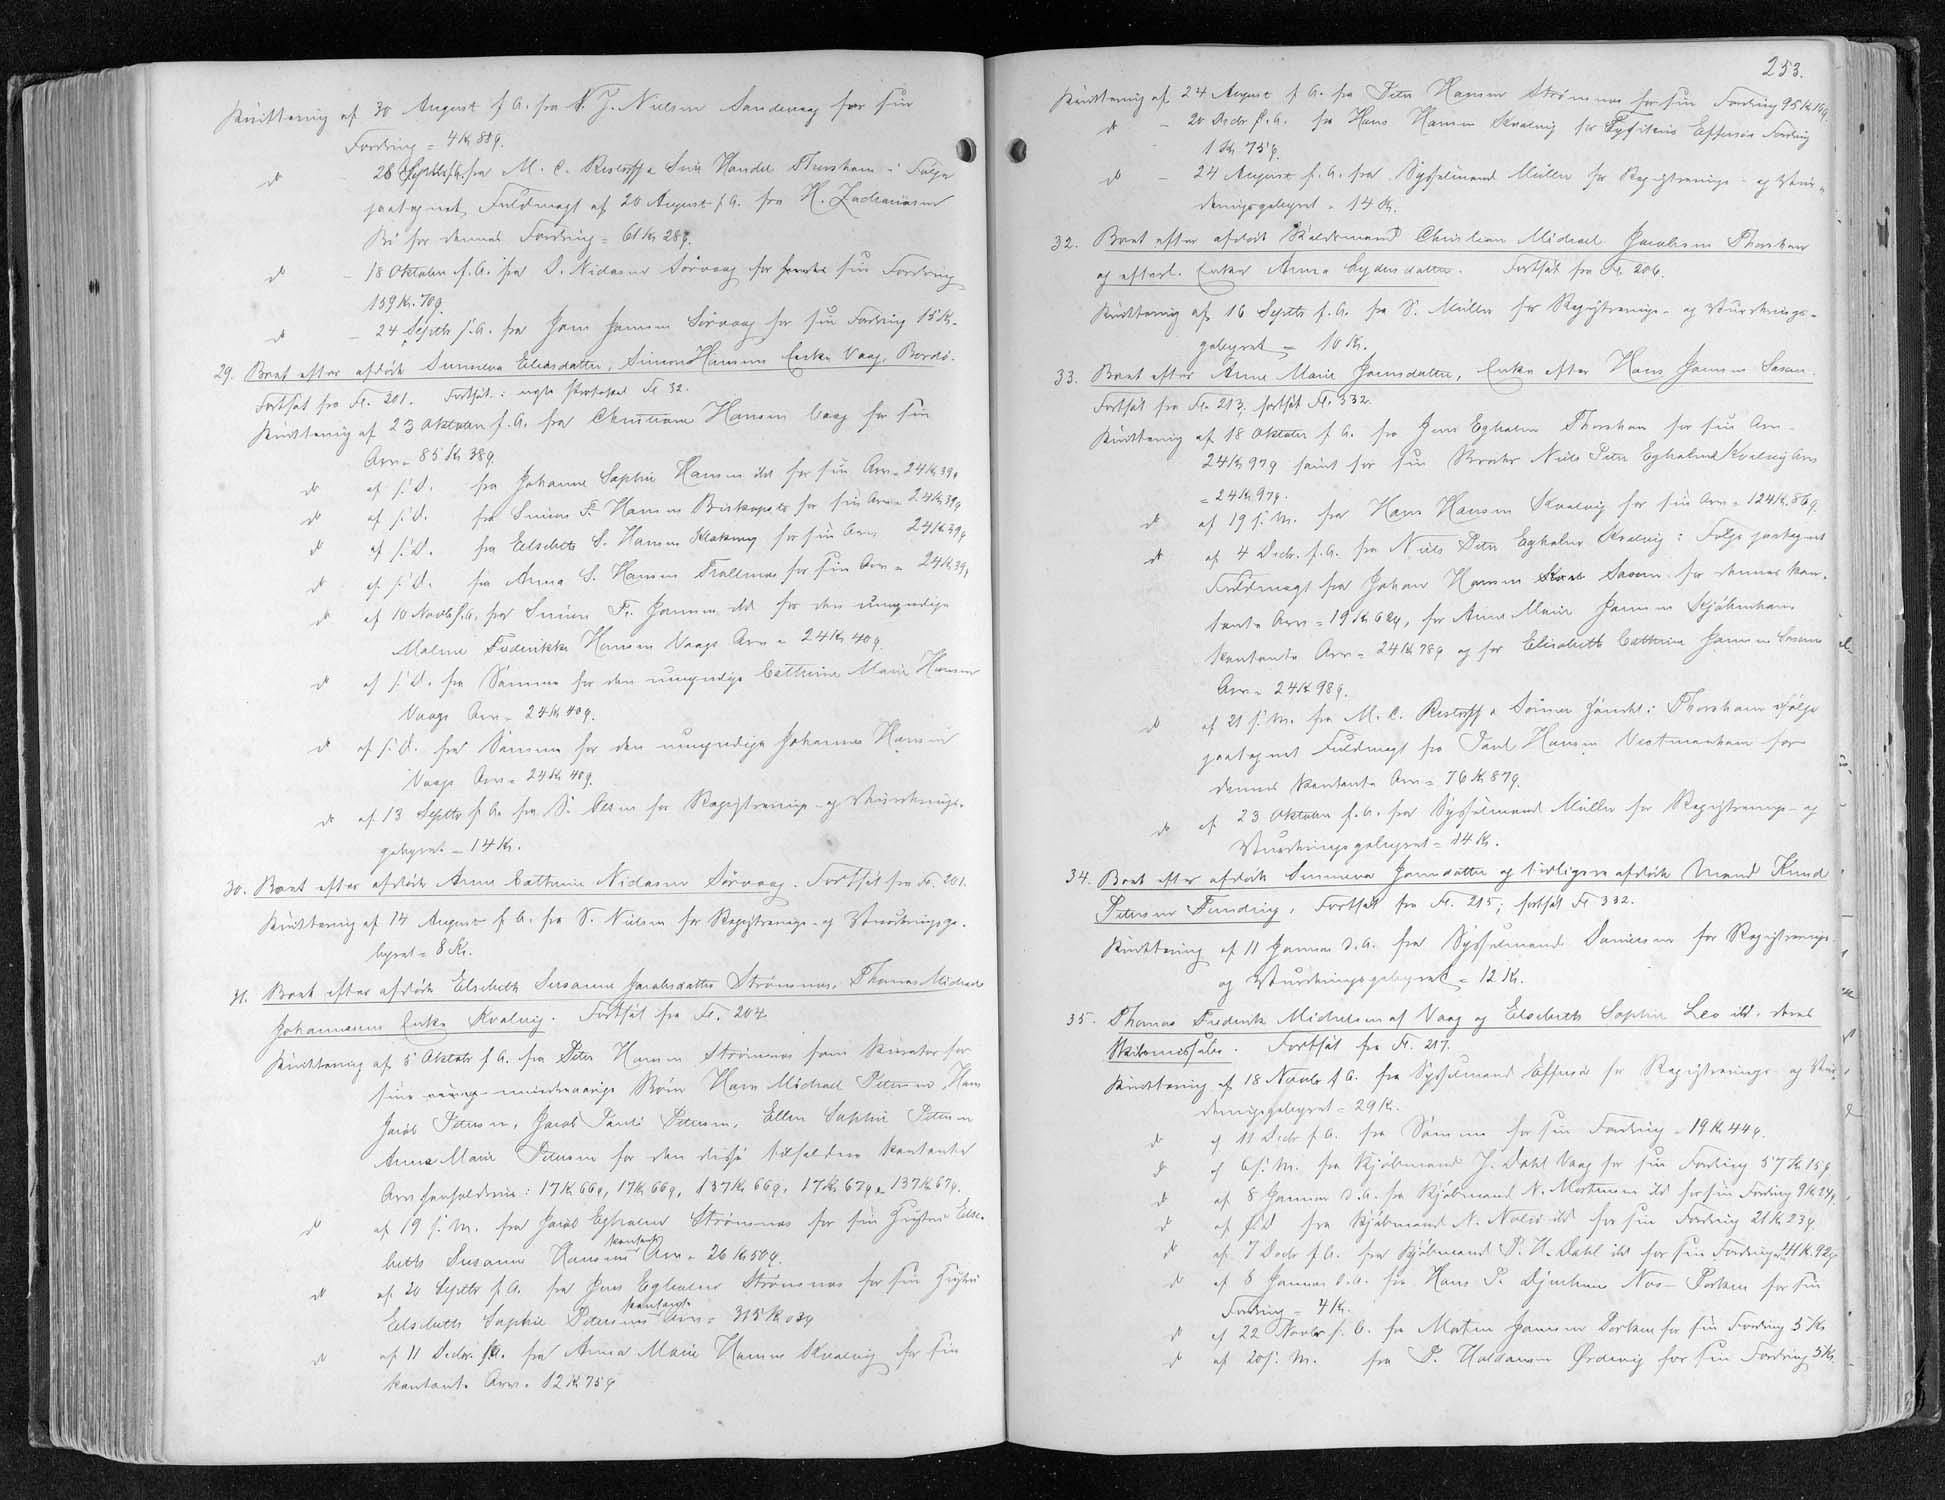 Kvittering af 30 August f. A. fra N. J. Nielsen Sandevaag for sin
Fordring = 4 Kr 88 Ø.
do - 28 Septbr f. A. fra M. C. Restorff & Søns Handel Thorshavn i Følge
paategnet Fuldmagt af 20 August f. A. fra H. Zachariasen
Bø for dennes Fordring = 61 Kr 28 Ø.
do - 18 Oktober f. A. fra D. Niclasen Sørvaag for sin Fordring
159 Kr. 70 Ø.
do - 24 Septbr f. A. fra Joen Joensen Sørvaag for sin Fordring 15 Kr.
29. Boet efter afdøde Sunneva Eliasdatter, Simon Hansens Enke Vaag, Bordø.
Fortsat fra Fol. 201. Fortsat i nyste Protokol Fol. 32.
Kvittering af 23 Oktober f. A. fra Christiane Hansen Vaag for sin
Arv = 85 Kr 38 Ø.
do af s. D. fra Johanne Sophie Hansen ibd for sin Arv = 24 Kr 39 Ø
do af s. D. fra Simon F. Hansen for sin Arv = 24 Kr 39 Ø
do af s. D. fra Elsebeth S. Hansen Klaksvig for sin Arv 24 Kr 39 Ø
do af s. D. fra Anna S. Hansen Trællenæs for sin Arv = 24 Kr 39 Ø
do af 10 Novbr f. A. fra Simon Fr. Joensen ibd for den umyndige
Maline Frederikke Hansen Vaags Arv = 24 Kr 40 Ø.
do af s. D. fra Samme for den umyndige Cathrine Marie Hansen
Vaags Arv = 24 Kr 40 Ø.
do af s. D. fra Samme for den umyndige Johannes Hansen
Vaags Arv = 24 Kr 40 Ø.
do af 13 Septbr f. A. fra S. Olsen for Registrerings- og Vurderings-
gebyret = 14 Kr.
30. Boet efter afdøde Anne Cathrine Niclasen Sørvaag. Fortsat fra Fol. 201.
Kvittering af 14 August f. A. fra S. Nielsen for Registrerings- og Vurderingsge-
byret = 8 Kr.
31. Boet efter afdøde Elsebeth Susanne Jacobsdatter Strømnæs, Thomas Michael
Johannesens Enke Kvalvig. Fortsat fra Fol. 204
Kvittering af 5 Oktobr f. A. fra Peter Hansen Strømnæs som Kurator for
sine mindreaarige Børn Hans Michael Petersen, Hans
Jacob Petersen, Jacob Pauli Petersen, Ellen Sophie Petersen
Anna Marie Petersen for den disse tilfaldne kontante
Arv henholdsvis: 17 Kr 66 Ø, 17 Kr 66 Ø, 137 Kr 66 Ø, 17 Kr 67 Ø & 137 Kr 67 Ø.
do af 19 s. M. fra Jacob Egholm Strømnæs for sin Hustru Else-
beth Susanne Hansens kontante Arv = 26 Kr 50 Ø.
do af 20 Septbr f. A. fra Jens Egholm Strømnæs for sin Hustru
Elsebeth Sophie Petersens kontante Arv = 315 Kr 03 Ø
do af 11 Decbr. f. A. fra Anna Marie Hansen Kvalvig for sin
kontante Arv = 12 Kr 75 Ø
253.
Kvittering af 24 August f. A. fra Peter Hansen Strømnæs for sin Fordring 95 Kr 16 Ø.
do - 20 Decbr f. A. fra Hans Hansen Kvalvig for Effersøe Fordring
1 Kr 75 Ø.
do - 24 August f. A. fra Sysselmand Müller for Registrerings- og Vur-
deringsgebyret = 14 Kr.
32. Boet efter afdøde Christian Michael Jacobsen Thorshavn
og efterl. Enke Anna Lydersdatter. Fortsat fra Fol. 206.
Kvittering af 16 Septbr f. A. fra S. Müller for Registrerings- og Vurderings-
gebyret = 10 Kr.
33. Boet efter Anne Marie Joensdatter, Enke efter Hans Joensen Saxen.
Fortsat fra Fol. 213; fortsat Fol. 332.
Kvittering af 18 Oktober f. A. fra Jens Egholm Thorshavn for sin Arv =
24 Kr 97 Ø samt for sin Broder Niels Peter Egholms Kvalvig Arv
= 24 Kr 97 Ø.
do af 19 s. M. fra Hans Hansen Kvalvig for sin Arv = 124 Kr. 86 Ø.
do af 4 Decbr. f. A. fra Niels Peter Egholm Kvalvig i Følge paategnet
Fuldmagt fra Johan Hansen Saxen for dennes kon-
tante Arv = 19 Kr 62 Ø, for Anne Marie Joensen Kjøbenhavns
kontante Arv = 24 Kr 98 Ø og for Elisabeth Cathrine Joensen Saxens
Arv = 24 Kr 98 Ø.
do af 21 s. M. fra M. C. Restorff & Sønner Handel i Thorshavn ifølge
paategnet Fuldmagt fra Poul Hansen Vestmanhavn for
dennes kontante Arv = 76 Kr 87 Ø.
do af 23 Oktober f. A. fra Sysselmand Müller for Registrerings- og
Vurderingsgebyret = 14 Kr.
34. Boet efter afdøde Sunneva Joensdatter og tidligere afdøde Mand Knud
Petersen Funding, Fortsat fra Fol. 215; fortsat Fol 332.
Kvittering af 11 Januar d. A. fra Sysselmand Danielsen for Registrerings-
og Vurderingsgebyret = 12 Kr.
35. Thomas Frederik Michelsen af Vaag og Elsebeth Sophie Leo ibd. deres
Skilsmissebo. Fortsat fra Fol. 217.
Kvittering af 18 Novbr f. A. fra Sysselmand Effersøe for Registrerings- og Vur-
deringsgebyret = 29 Kr.
do af 11 Decbr f. A. fra Samme for sin Fordring = 19 Kr 44 Ø.
do af 6 s. M. fra Kjøbmand J. Dahl Vaag for sin Fordring 57 Kr 15 Ø
do af 8 Januar d. A. fra Kjøbmand N. Mortensen ibd for sin Fordring 9 Kr 24 Ø.
do af s. D fra Kjøbmand N. Nolsø ibd for sin Fordring 21 Kr 23 Ø.
do af 7 Decbr f. A. fra Kjøbmand P. H. Dahl ibd for sin Fordring 41 Kr. 92 Ø
do af 8 Januar d. A. fra Hans P. Djurhuus Næs - Porkere for sin
Fordring = 4 Kr.
do af 22 Novbr f. A. fra Morten Joensen Porkere for sin Fordring 5 Kr
do af 20 s. M. fra P. Ørdevig for sin Fordring 5 Kr.